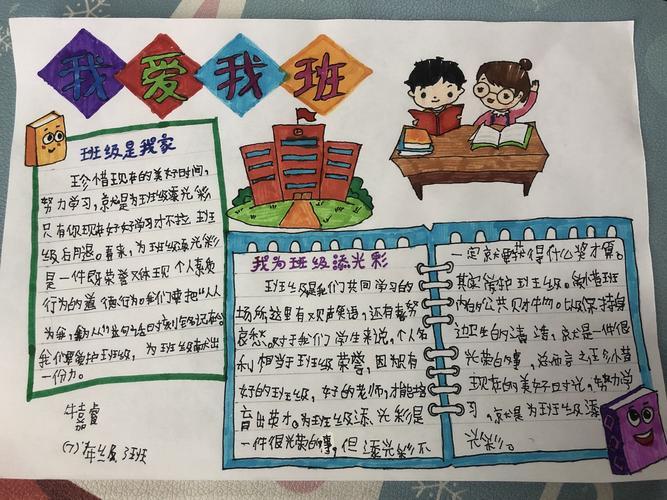 我爱我班
班级是我家
珍惜现在的美好时间,
努力学习,就是为班级添光彩
只有你现在好好学习才不拉班
级后腿。看来,为班级添光彩
是一件既荣誉又体现个人素质
行为的道德行为。我们要把“人人
为我,我为人人”这句话时刻铭记
我们要爱护班级,为班级献出
一份力。
(7)年级3班
我为班级添光彩
班级是我们共同学习的
场所这里有欢声笑语,还有
哀愁。对于我们学生来说,个人名
利相当于班级荣誉,因为只有
好的班级,好的老师,才能培
育出英才。为班级添光彩是
一件很光荣的事,但添光彩不
一定就要获得什么奖才算。
其实爱护班级。爱惜班
内的公共财物。以及保持自
边卫生的清洁,就是一件很
光荣的事,总而言之珍惜
现在的美好时光,努力学
习,就是为班级添
光彩。